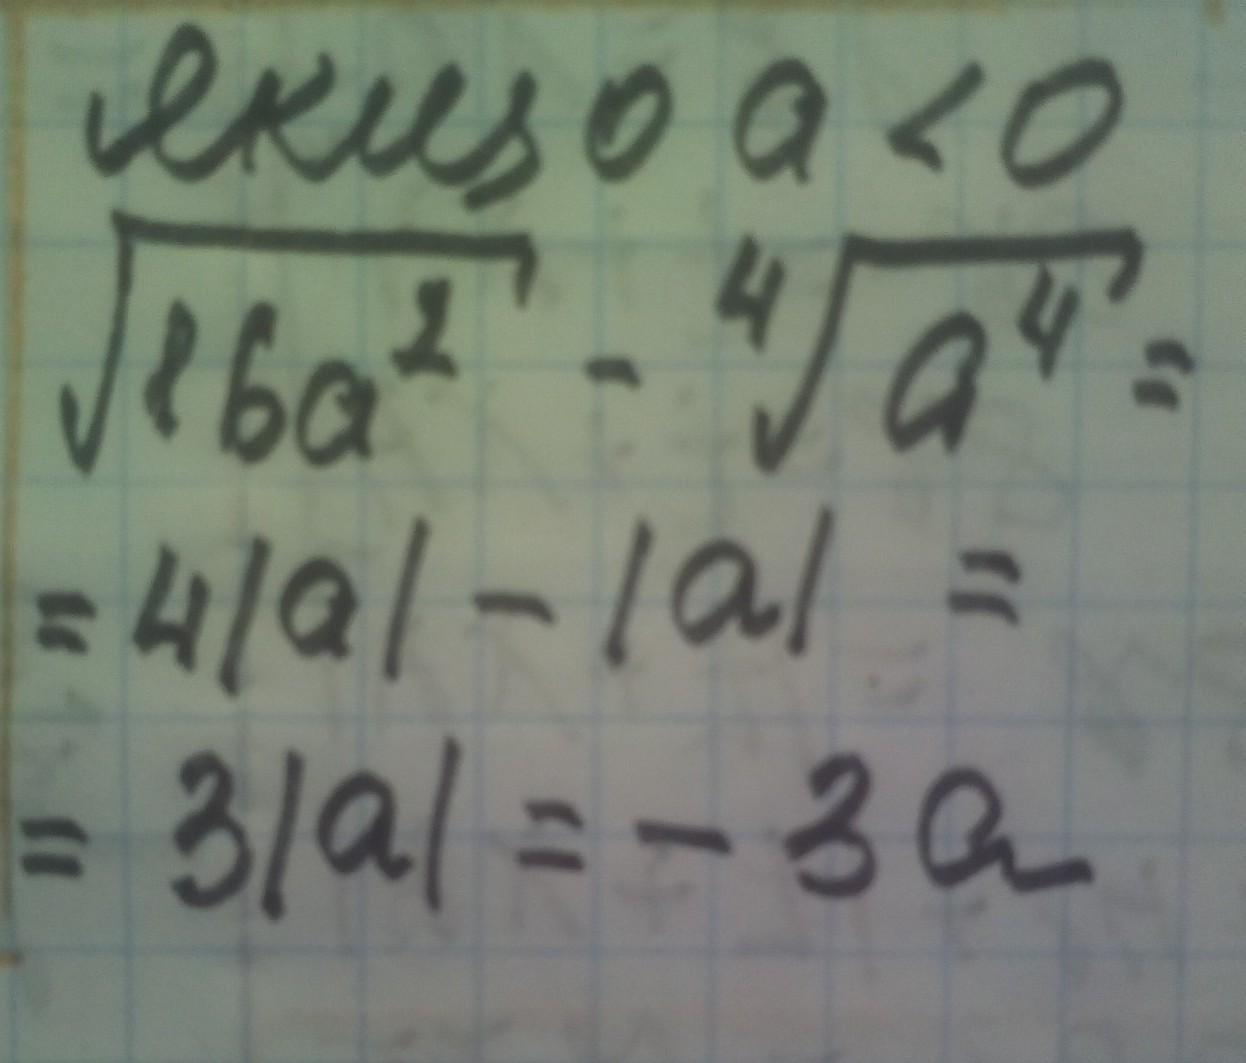 якщо a < 0
√16a² - ⁴√a⁴ =
= 4|a| - |a| =
= 3|a| = - 3a